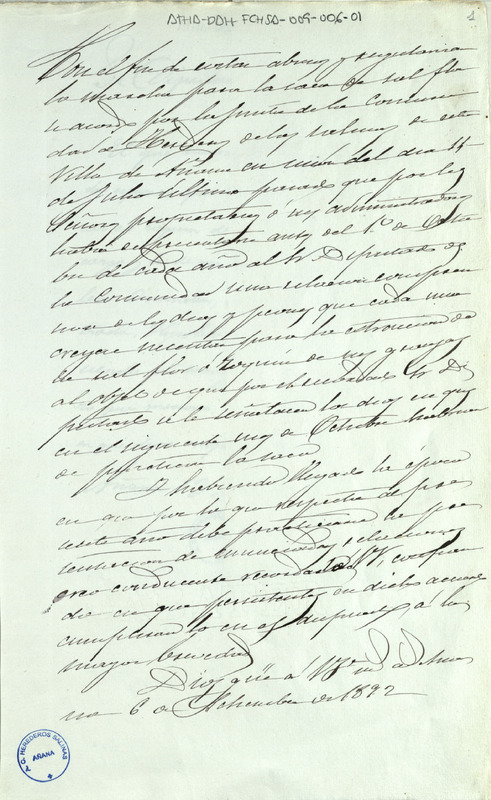 ATHA-DAH-FCHSA-009-006-01
1
Con el fin de evitar abusos y regularizar
la marcha para la saca de sal flor
se acordó por la Junta de la Comuni
dad de Herederos de las salinas de esta
Villa de Añana en unión del día 14
de Julio último pasado que por los
Señores propietarios ó sus administradores
habrá de presentarse antes del 1º de Octu
bre de cada año al Sr. Diputado de
la Comunidad una relación comprensi
va de los días y peones que cada uno
creyere necesitar para la estracción de
la sal flor ó de sus granjas
al objeto de que por el Sr. Di
putado se le señalaran los días en que
en el siguiente mes de Octubre habrian
de practicar la saca
Y habiendo llegado la época
en que por lo que respecta al pre
sente año debe practicarse la pre
sentación de mencionadas relaciones
creo conducente recordarlo á V,
do en que persistentes en dichos acuerdos
cumplirán lo en él dispuesto á la
mayor brevedad
Dios gue á V. Aña
na 6 de Setiembre de 1892
C. G. HEREDEROS SALINAS
AÑANA